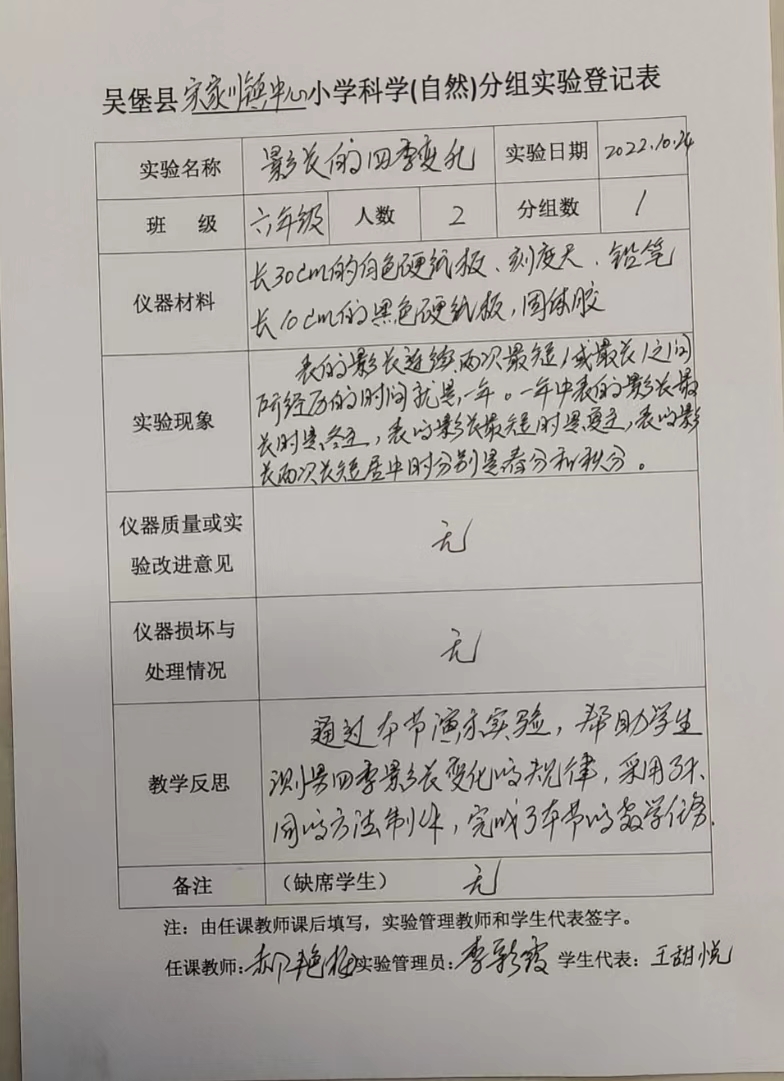 吴堡县宋家川镇中心小学科学(自然)分组实验登记表
实验名称 影长的四季变化 实验日期 2022.10.24
班 级 六年级 人数 2 分组数 1
仪器材料
长30cm的白色硬纸板、刻度尺、铅笔
长10cm的黑色硬纸板,固体胶
实验现象
表的影长连续两次最短(或最长)之间
所经历的时间就是一年。一年中表的影长最
长时是冬至,表的影长最短时是夏至,表的影
长两次长短居中时分别是春分和秋分。
仪器质量或实
验改进意见
无
仪器损坏与
处理情况
无
教学反思
通过本节演示实验,帮助学生
测量四季影长变化的规律,采用了
用的方法制作,完成了本节的教学任务.
备注 (缺席学生) 无
注:由任课教师课后填写,实验管理教师和学生代表签字。
任课教师:郝艳梅 实验管理员:李彩霞 学生代表:王甜悦